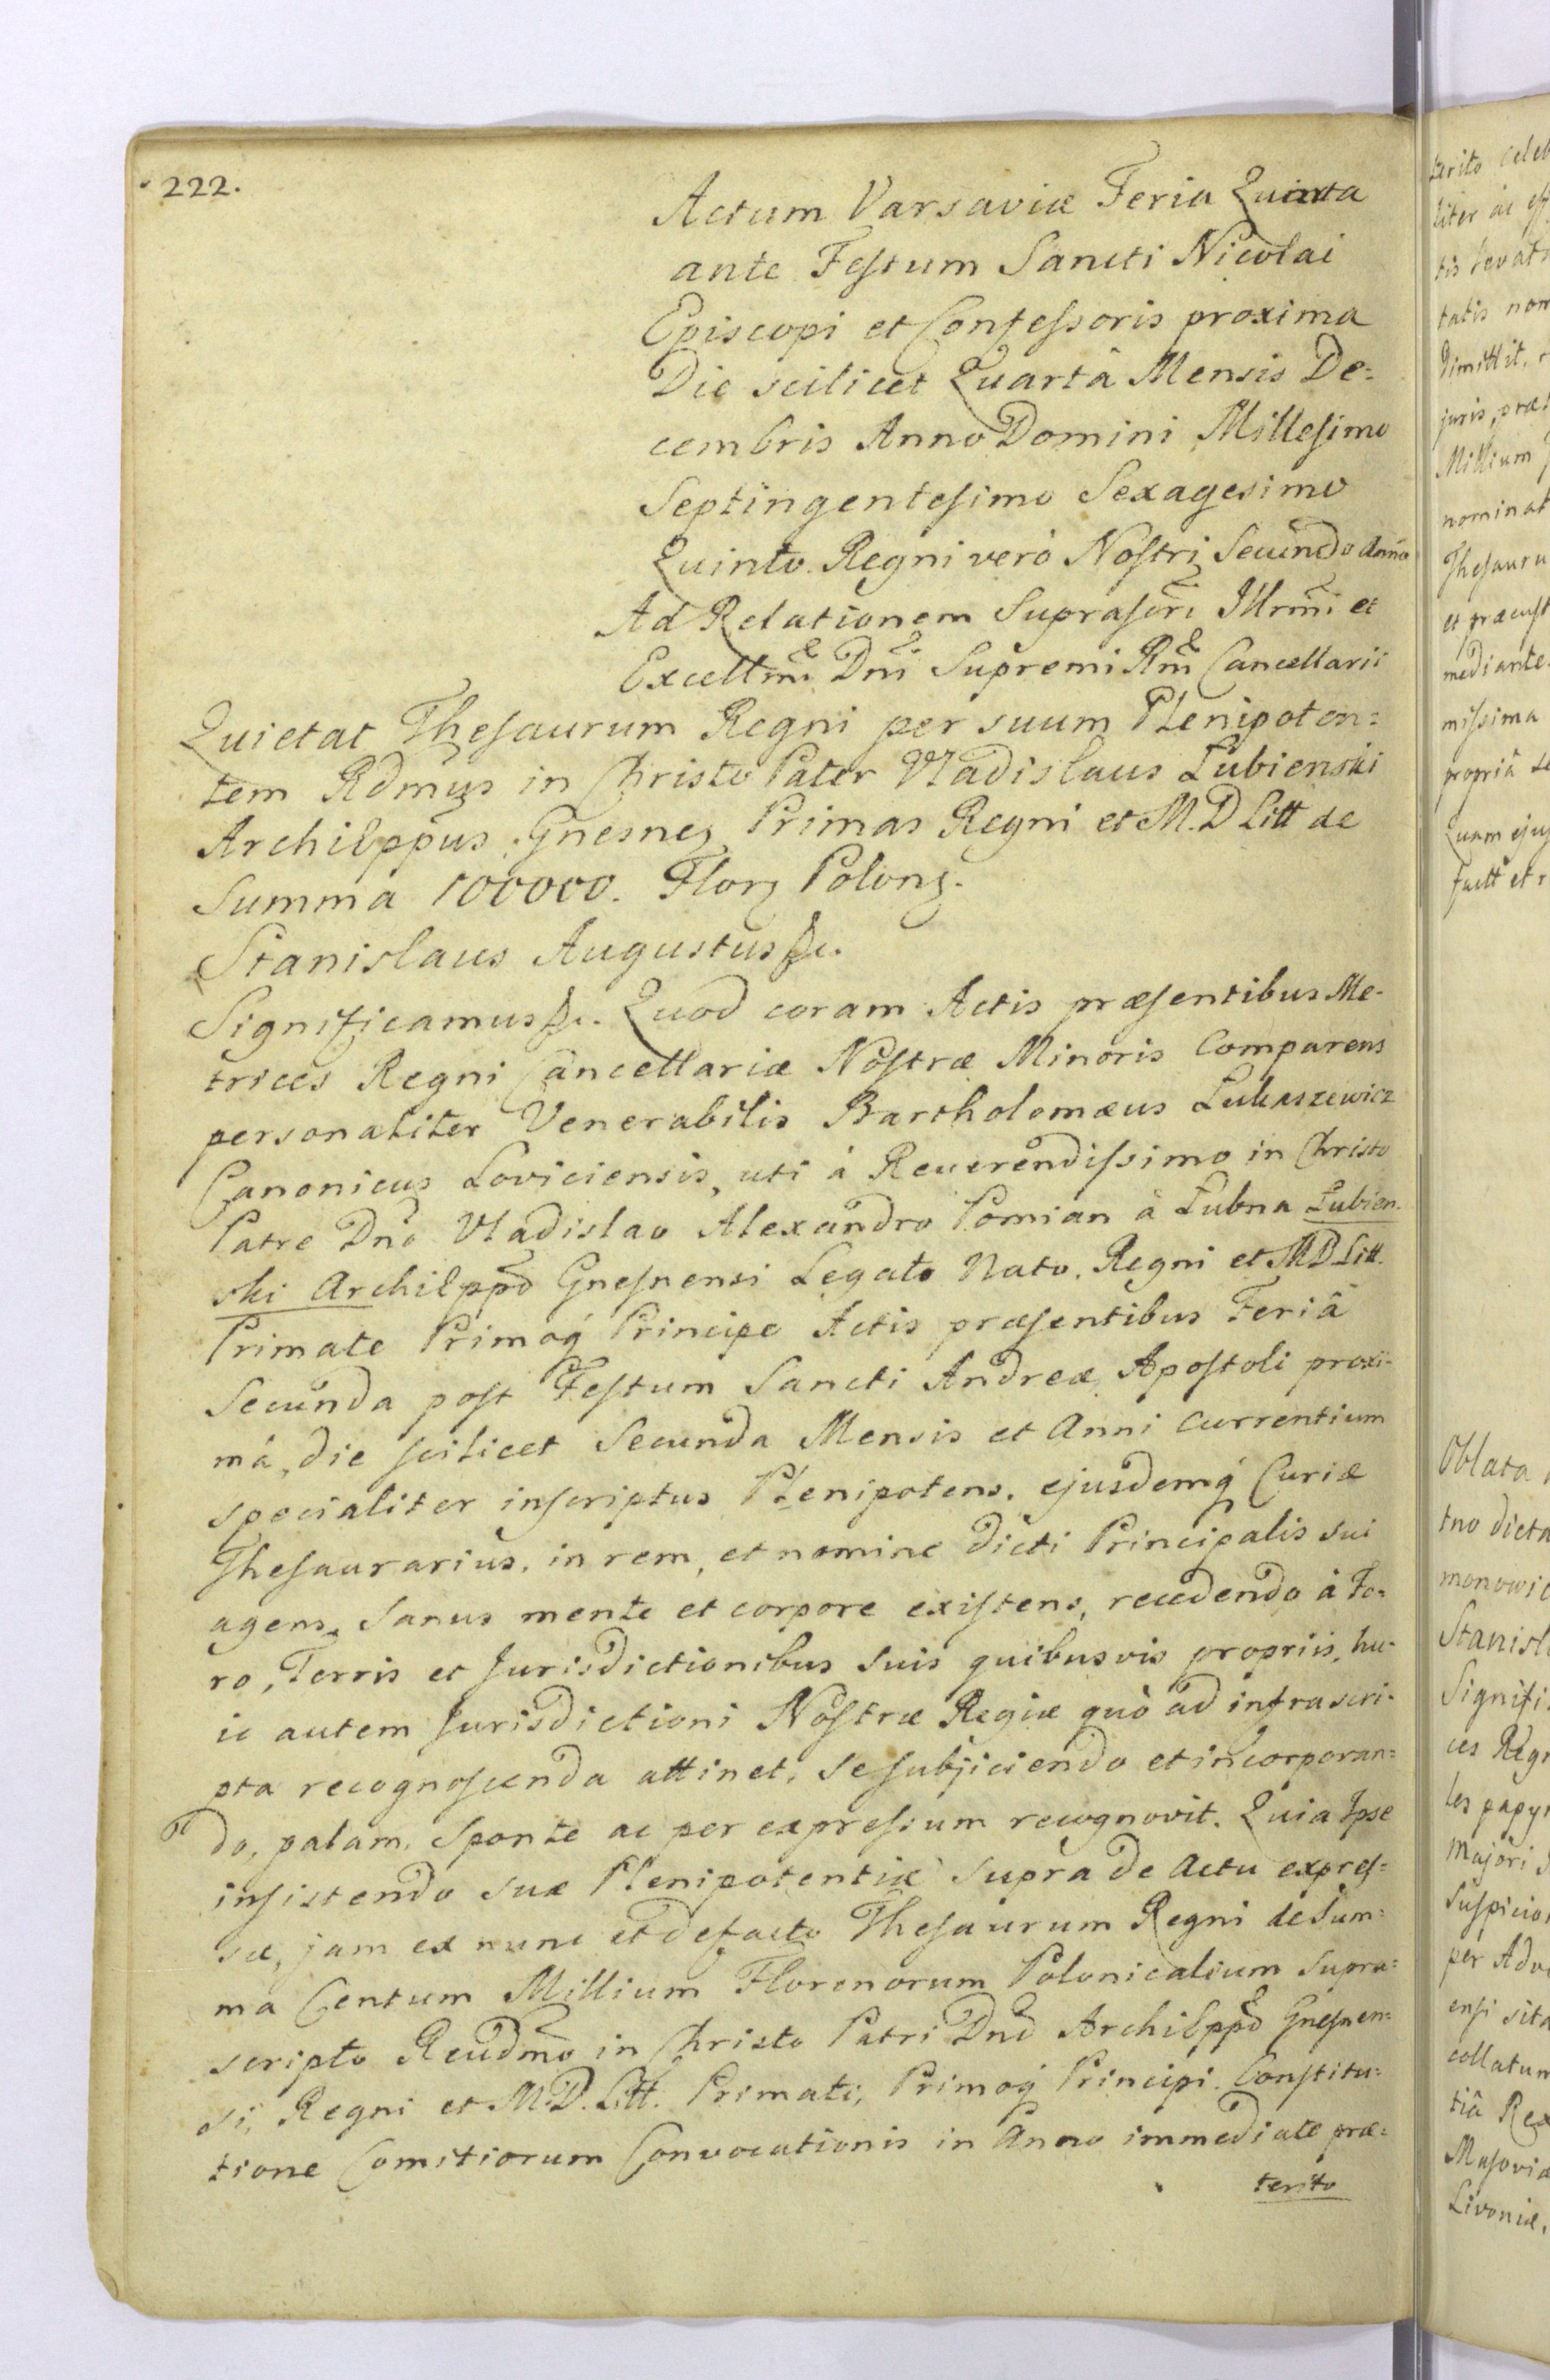 222.
Actum Varsaviæ Feria Quinta
ante Festum Sancti Nicolai
Episcopi et Confessoris proxima
Die scilicet Quartâ Mensis De=
cembris Anno Domini Millesimo
Septingentesimo Sexagesimo
Quinto Regni verò Nostri Secundo Anno
Ad Relationem Suprascri Illrmi et
Excellmi Dni Supremi Rni Cancellarii
Quietat Thesaurum Regni per suum Plenipoten=
tem Rdmus in Christo Pater Vladislaus Łubienski
Archieppus Gnesnes Primas Regni et M.D Litt de
Summa 100000. Flor Polon.
Stanislaus Augustus &c.
Significamus &c. Quod coram Actis præsentibus Me-
trices Regni Cancellariæ Nostræ Minoris Comparens
personaliter Venerabilis Bartholomæus Łukaszewicz
Canonicus Loviciensis, uti à Reverendissimo in Christo
Patre Dno Vladislao Alexandro Pomian à Łubna Łubien-
ski Archieppo Gnesnensi Legato Nato. Regni et M.D Litt.
Primate Primoq Principe Actis præsentibus Feriâ
Secunda post Festum Sancti Andreæ Apostoli proxi-
mâ, die scilicet Secunda Mensis et Anni currentium
specialiter inscriptus Plenipotens, ejusdemq Curiæ
Thesaurarius, in rem, et nomine dicti Principalis sui
agens, Sanus mente et corpore existens, recedendo à Fo=
ro, Terris et Jurisdictionibus suis quibusvis propriis, hu-
ic autem Jurisdictioni Nostræ Regiæ quò ad infrascri-
pta recognoscenda attinet, se subjiciendo et incorporan=
do, palam, Sponte ac per expressum recognovit. Quia Ipse
insistendo suæ Plenipotentiæ supra de Actu expres=
sæ, jam ex nunc et de facto Thesaurum Regni de Sum=
ma Centum Millium Florenorum Polonicalium Supra=
scripto Reudmo in Christo Patri Dno Archieppo Gnesnen=
si, Regni et M.D. Litt. Primati, Primoq Principi Constitu=
tione Comitiorum Convocationis in Anno immediate præ=
terito
terito celeb
liter ac
tis levat
tatis non
dimittit,
juris, præ
Millium
nominat
Thesauru
et præcust
mediante
missima
propriâ
Quam ejus
factt et r
Oblata
tno dicta
monowic
Stanisl
Signifi
ces Regn
les papyr
majori
Suspicio
per Adv
ensi sita
collatum
tiâ Rex
Masoviæ
Livoniæ,